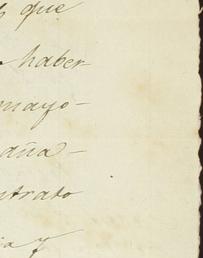 que
haber-
mayo-
aña-
ntrato
ia y